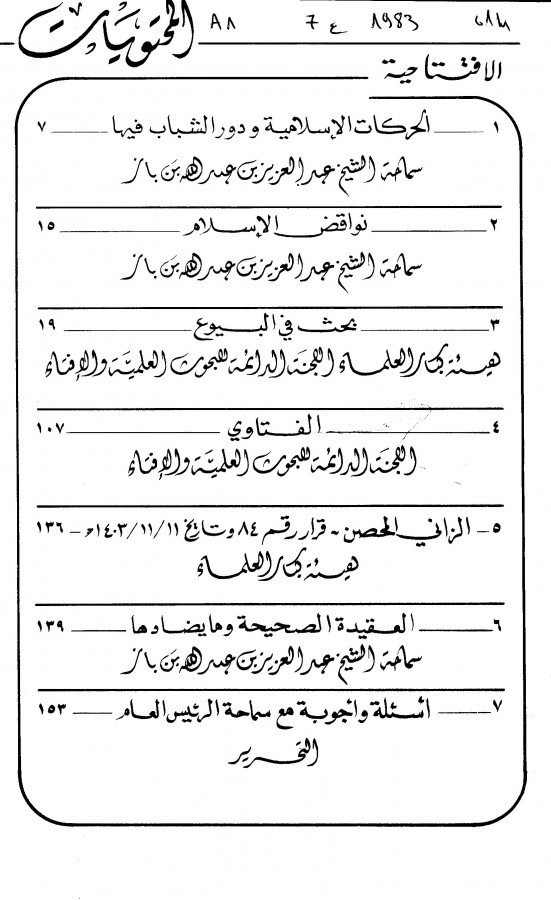 المحتويات
A٨ 7 ع 1983
الافتتاحية
١ ــ الحركات الإسلامية ودور الشباب فيها ــ ٧
سماحة الشيخ عبد العزيز بن عبد الله بن باز
٢ ــ نواقض الإسلام ــ ١٥
سماحة الشيخ عبد العزيز بن عبد الله بن باز
٣ ــ بحث في البيوع ــ ١٩
هيئة كبار العلماء اللجنة الدائمة للبحوث العلمية والإفتاء
٤ ــ الفتاوي ــ ١٠٧
اللجنة الدائمة للبحوث العلميَّة والإفتاء
٥ - الزاني المحصن - قرار رقم ٨٤ وتاريخ ١٤٠٣/١١/١١هـ - ١٣٦
هيئة كبار العلماء
٦ ــ العقيدة الصحيحة وما يضادها ــ ١٣٩
سماحة الشيخ عبد العزيز بن عبد الله بن باز
٧ ــ أسئلة وأجوبة مع سماحة الرئيس العام ــ ١٥٣
التحرير